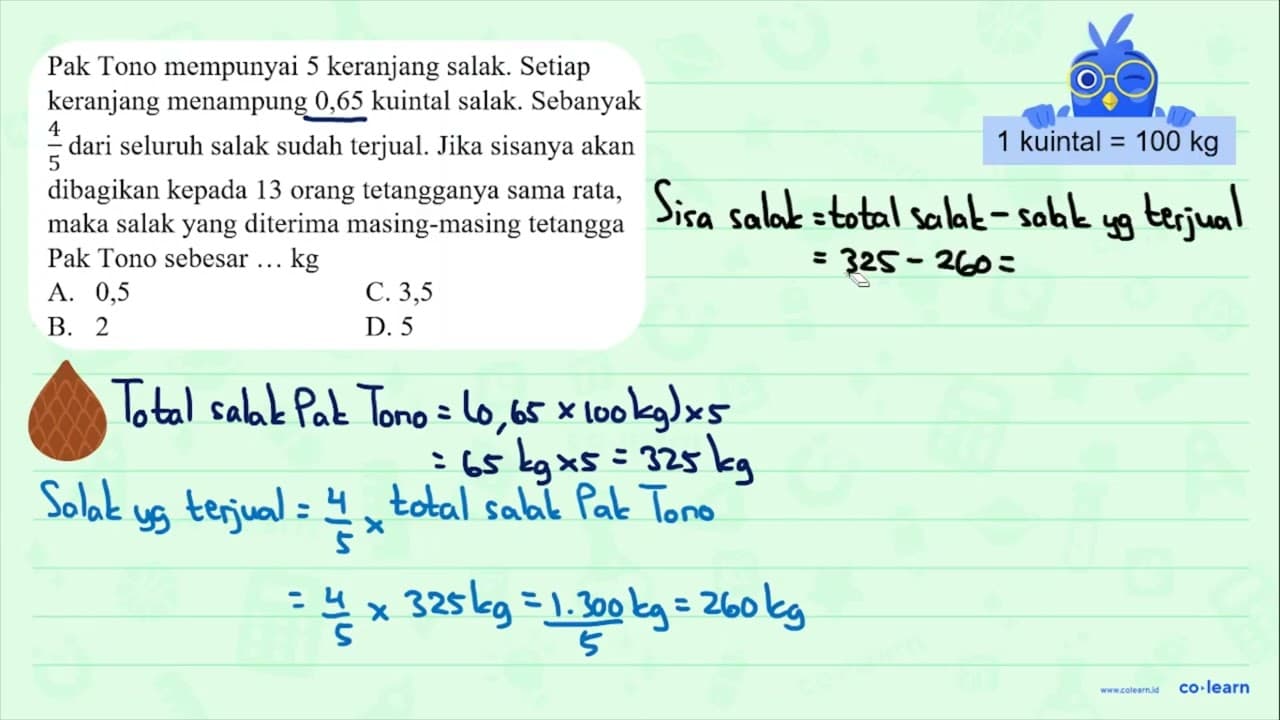 Pak Tono mempunyai 5 keranjang salak. Setiap
keranjang menampung 0,65 kuintal salak. Sebanyak
4/5 dari seluruh salak sudah terjual. Jika sisanya akan
dibagikan kepada 13 orang tetangganya sama rata,
maka salak yang diterima masing-masing tetangga
Pak Tono sebesar ... kg
A. 0,5 C. 3,5
B. 2 D. 5
1 kuintal = 100 kg
Sisa salak = total salak - salak yg terjual
= 325 - 260 =
Total salak Pak Tono = (0,65 × 100 kg) × 5
= 65 kg × 5 = 325 kg
Salak yg terjual = 4/5 × total salak Pak Tono
= 4/5 × 325 kg = 1.300/5 kg = 260 kg
www.colearn.id co·learn